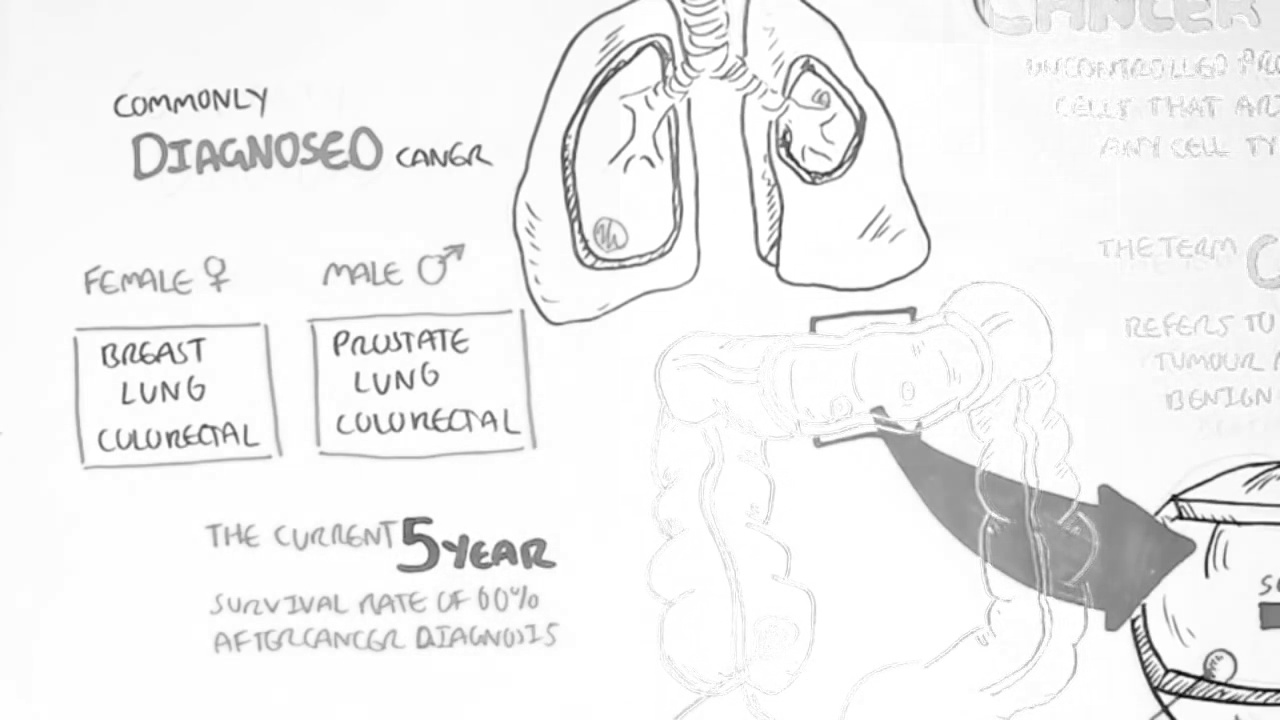 COMMONLY
DIAGNOSED CANCR
FEMALE ♀
MALE ♂
BREAST
LUNG
COLORECTAL
PROSTATE
LUNG
COLORECTAL
THE CURRENT 5 YEAR
SURVIVAL RATE OF 60%
AFTER CANCER DIAGNOSIS
CANCER
UNCONTROLLED
CELLS THAT
ANY CELL
THE TERM
REFERS TO
TUMOUR
BENIGN